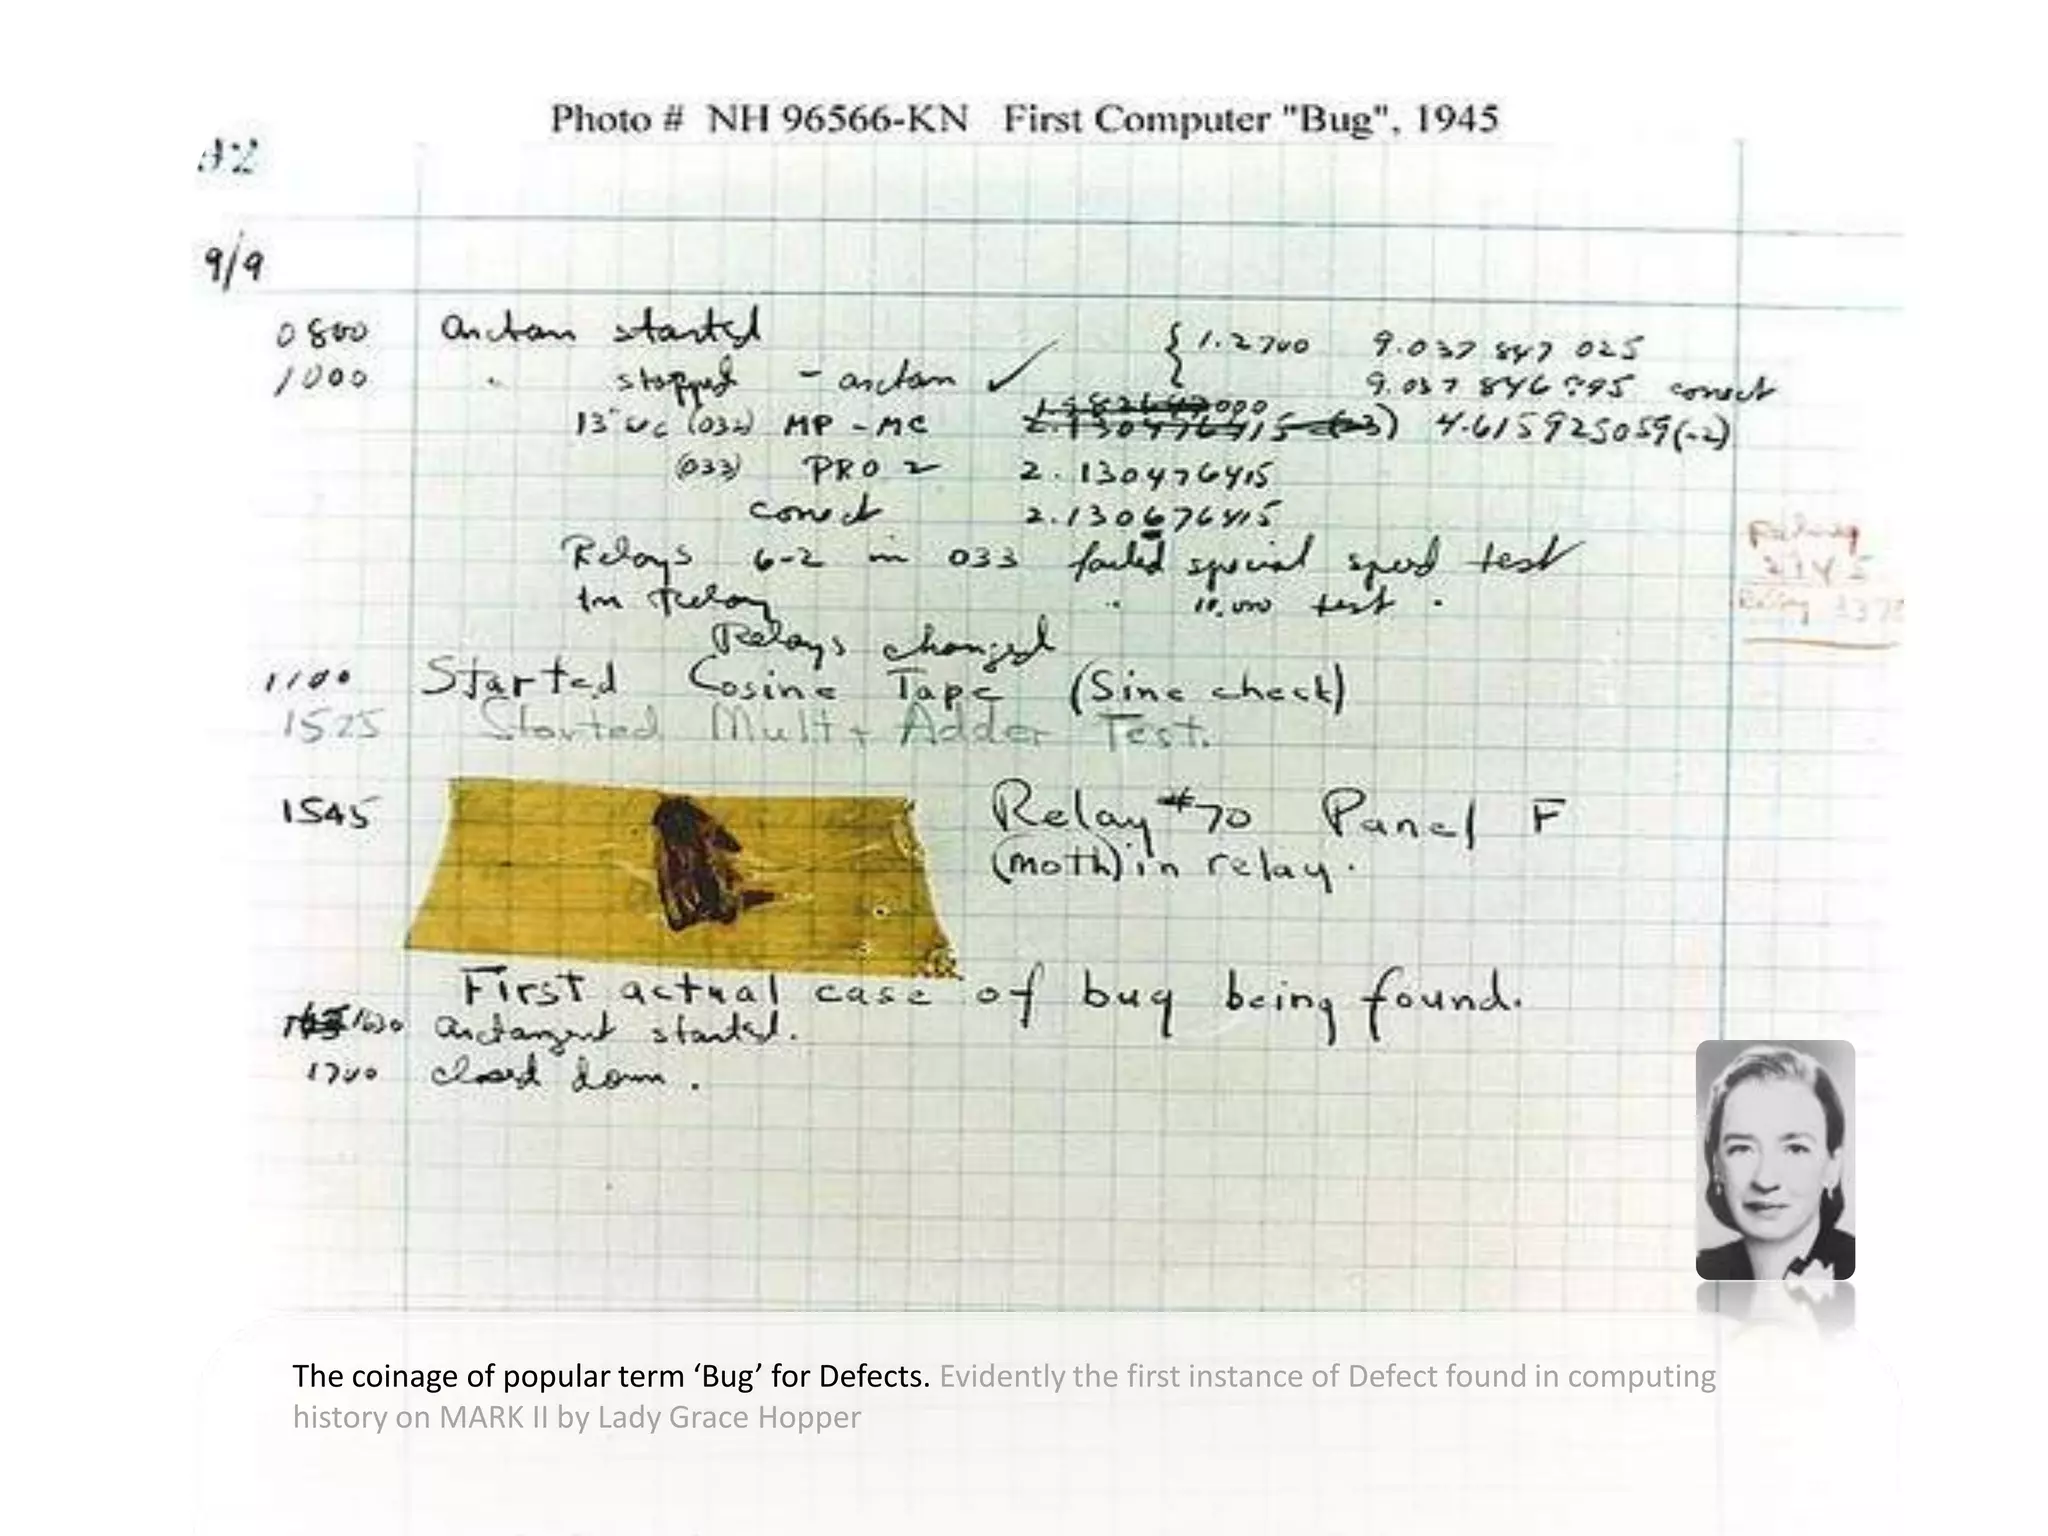 Photo # NH 96566-KN First Computer "Bug", 1945
92
9/9
0800 Antan started
1000 " stopped - antan ✓ { 1.2700 9.037 847 025
9.037 846 995 correct
13"uc (032) MP - MC 2.130476415 (-3) 4.615925059(-2)
(033) PRO 2 2.130476415
correct 2.130676415
Relays 6-2 in 033 failed special speed test
in relay " 10.000 test .
Relays changed
Relay
2145
Relay 337
1100 Started Cosine Tape (Sine check)
1525 Started Mult+ Adder Test.
1545 Relay #70 Panel F
(moth) in relay.
First actual case of bug being found.
1630 arctangent started.
1700 closed down.
The coinage of popular term ‘Bug’ for Defects. Evidently the first instance of Defect found in computing
history on MARK II by Lady Grace Hopper